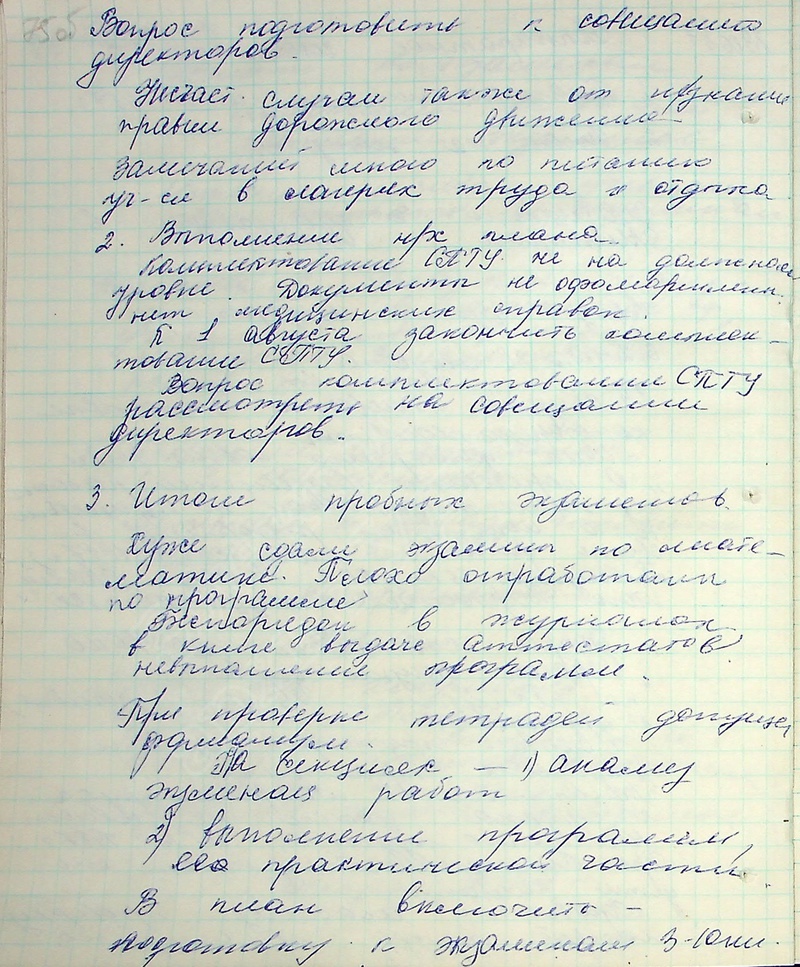 75об
Вопрос подготовить к совещанию
директоров.
Несчаст. случаи также от незнания
правил дорожного движения
Замечаний много по питанию
уч-ся в лагерях труда и отдыха
2. Выполнение н/х плана
Комплектование СПТУ не на должном
уровне. Документы не
нет медицинских справок.
К 1 августа закончить комплек-
тование СПТУ.
Вопрос комплектовании СПТУ
рассмотреть на совещании
директоров.
3. Итоги пробных экзаменов.
Хуже сдали экзамены по мате-
матике. Плохо отработали
по программе
Беспорядок в журналах
в книге выдаче аттестатов
невыполнение программ.
При проверке тетрадей допущен
формализм.
На секциях – 1) анализ
работ
2) выполнение программы,
её практической части
В план включить –
подготовку к экзаменам